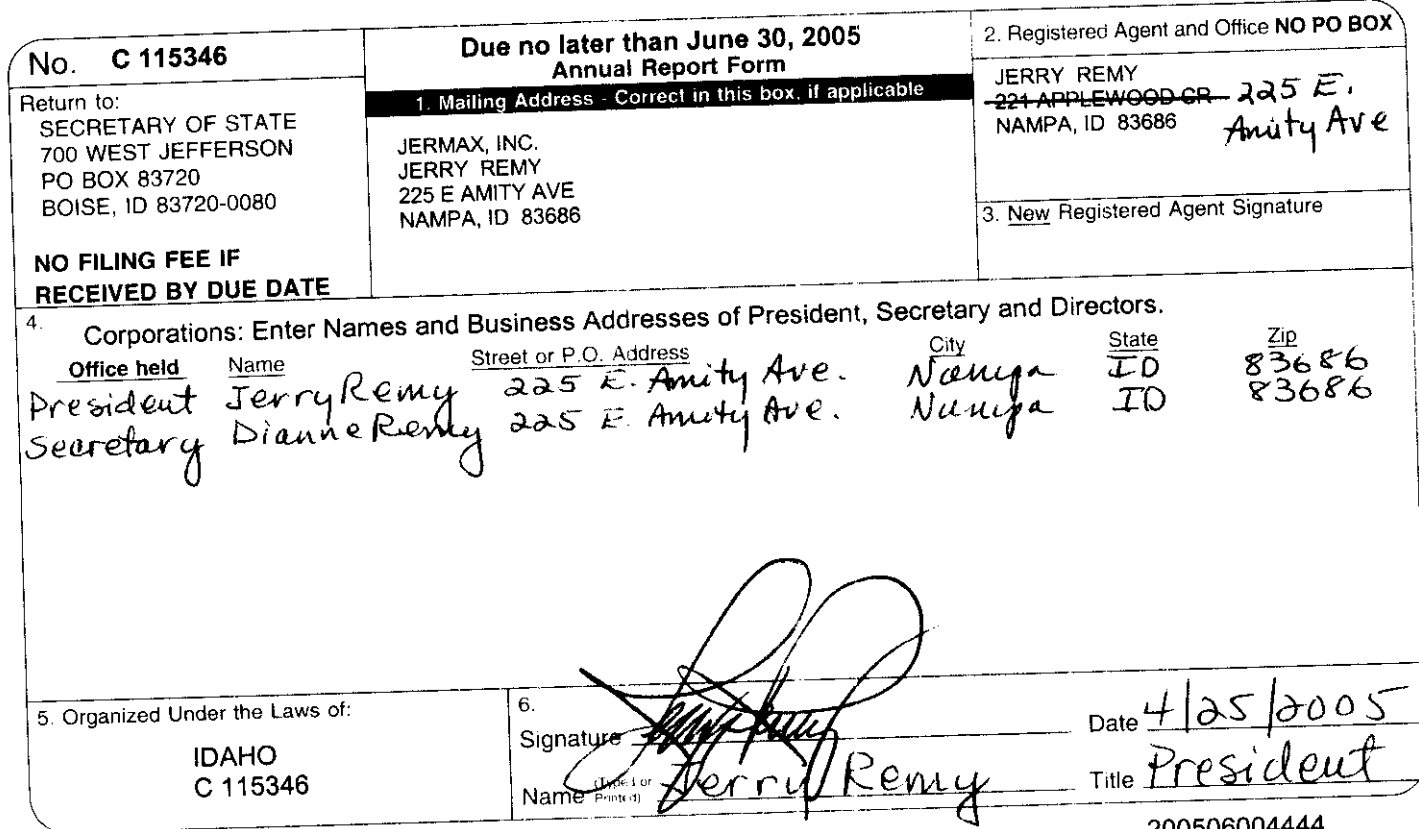 No. C 115346
Return to:
SECRETARY OF STATE
700 WEST JEFFERSON
PO BOX 83720
BOISE, ID 83720-0080
NO FILING FEE IF
RECEIVED BY DUE DATE
Due no later than June 30, 2005
Annual Report Form
1. Mailing Address - Correct in this box, if applicable
JERMAX, INC.
JERRY REMY
225 E AMITY AVE
NAMPA, ID 83686
2. Registered Agent and Office NO PO BOX
JERRY REMY
221 APPLEWOOD CR 225 E.
NAMPA, ID 83686 Amity Ave
3. New Registered Agent Signature
4. Corporations: Enter Names and Business Addresses of President, Secretary and Directors.
Office held Name Street or P.O. Address City State Zip
President Jerry Remy 225 E. Amity Ave. Nampa ID 83686
Secretary Dianne Remy 225 E. Amity Ave. Nampa ID 83686
5. Organized Under the Laws of:
IDAHO
C 115346
6.
Signature Date 4/25/2005
Name (Typed or Printed) Jerry Remy Title President
200506004444